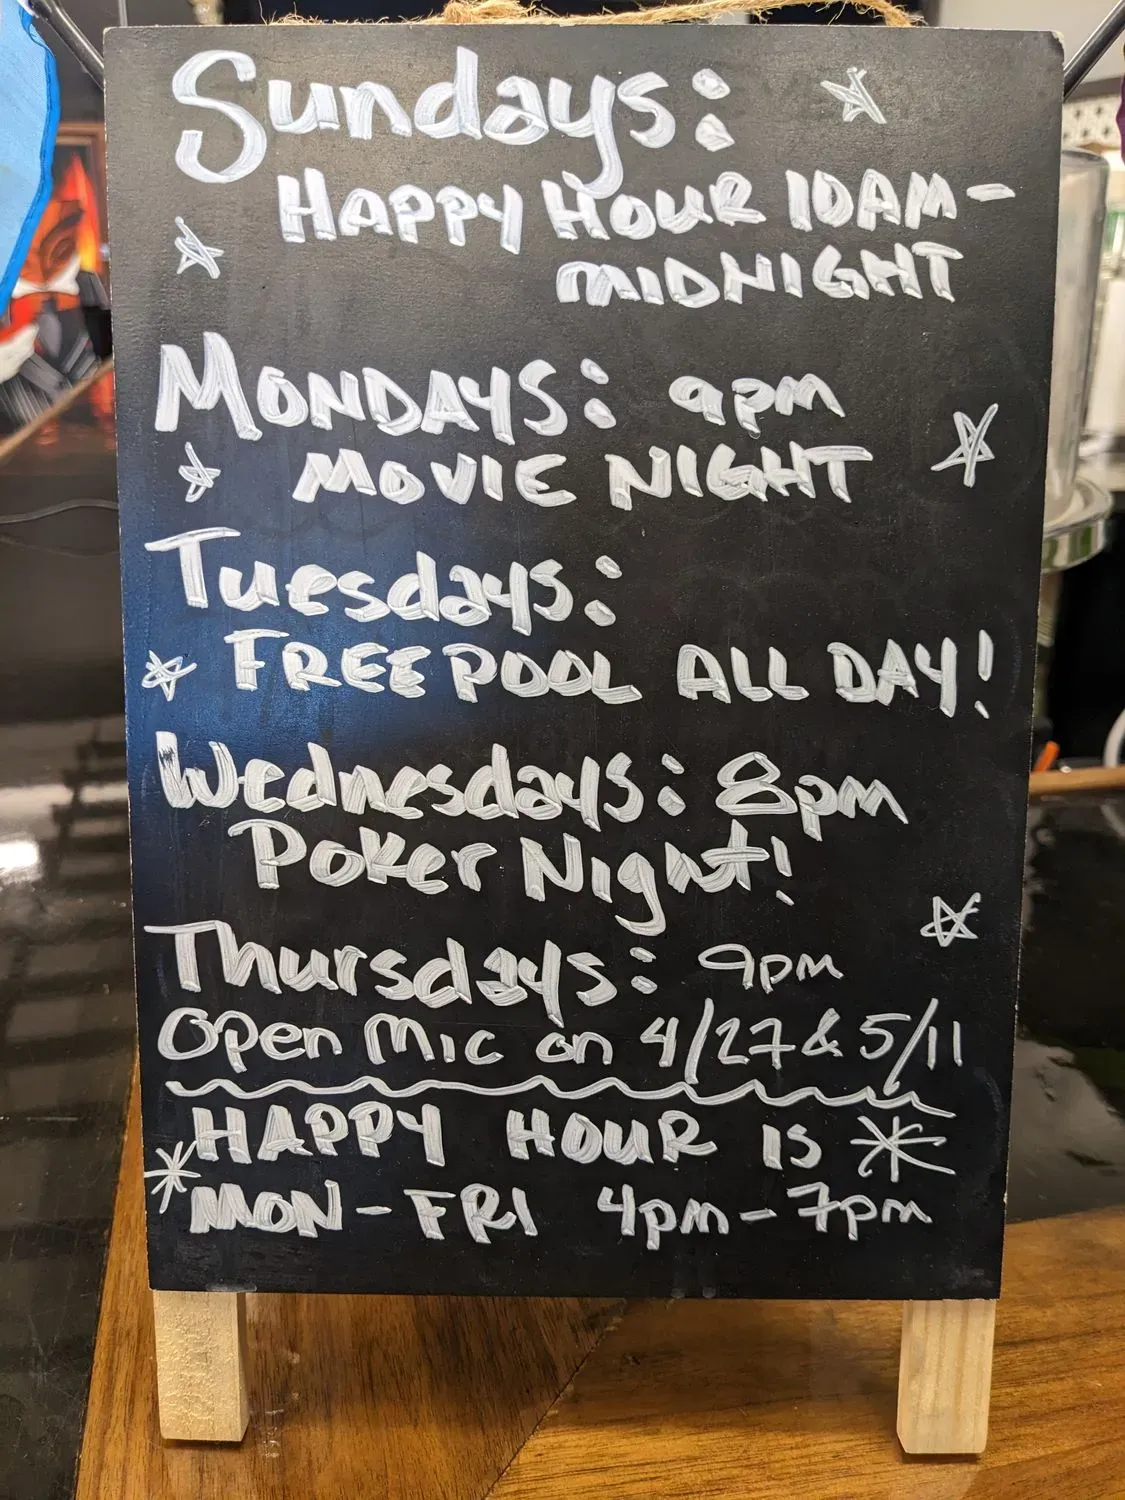 Sundays:
HAPPY HOUR 10AM-
MIDNIGHT
MONDAYS: 9pm
MOVIE NIGHT
Tuesdays:
FREE POOL ALL DAY!
Wednesdays: 8pm
Poker Night!
Thursdays: 9pm
Open Mic on 4/27 & 5/11
HAPPY HOUR IS
MON-FRI 4pm-7pm